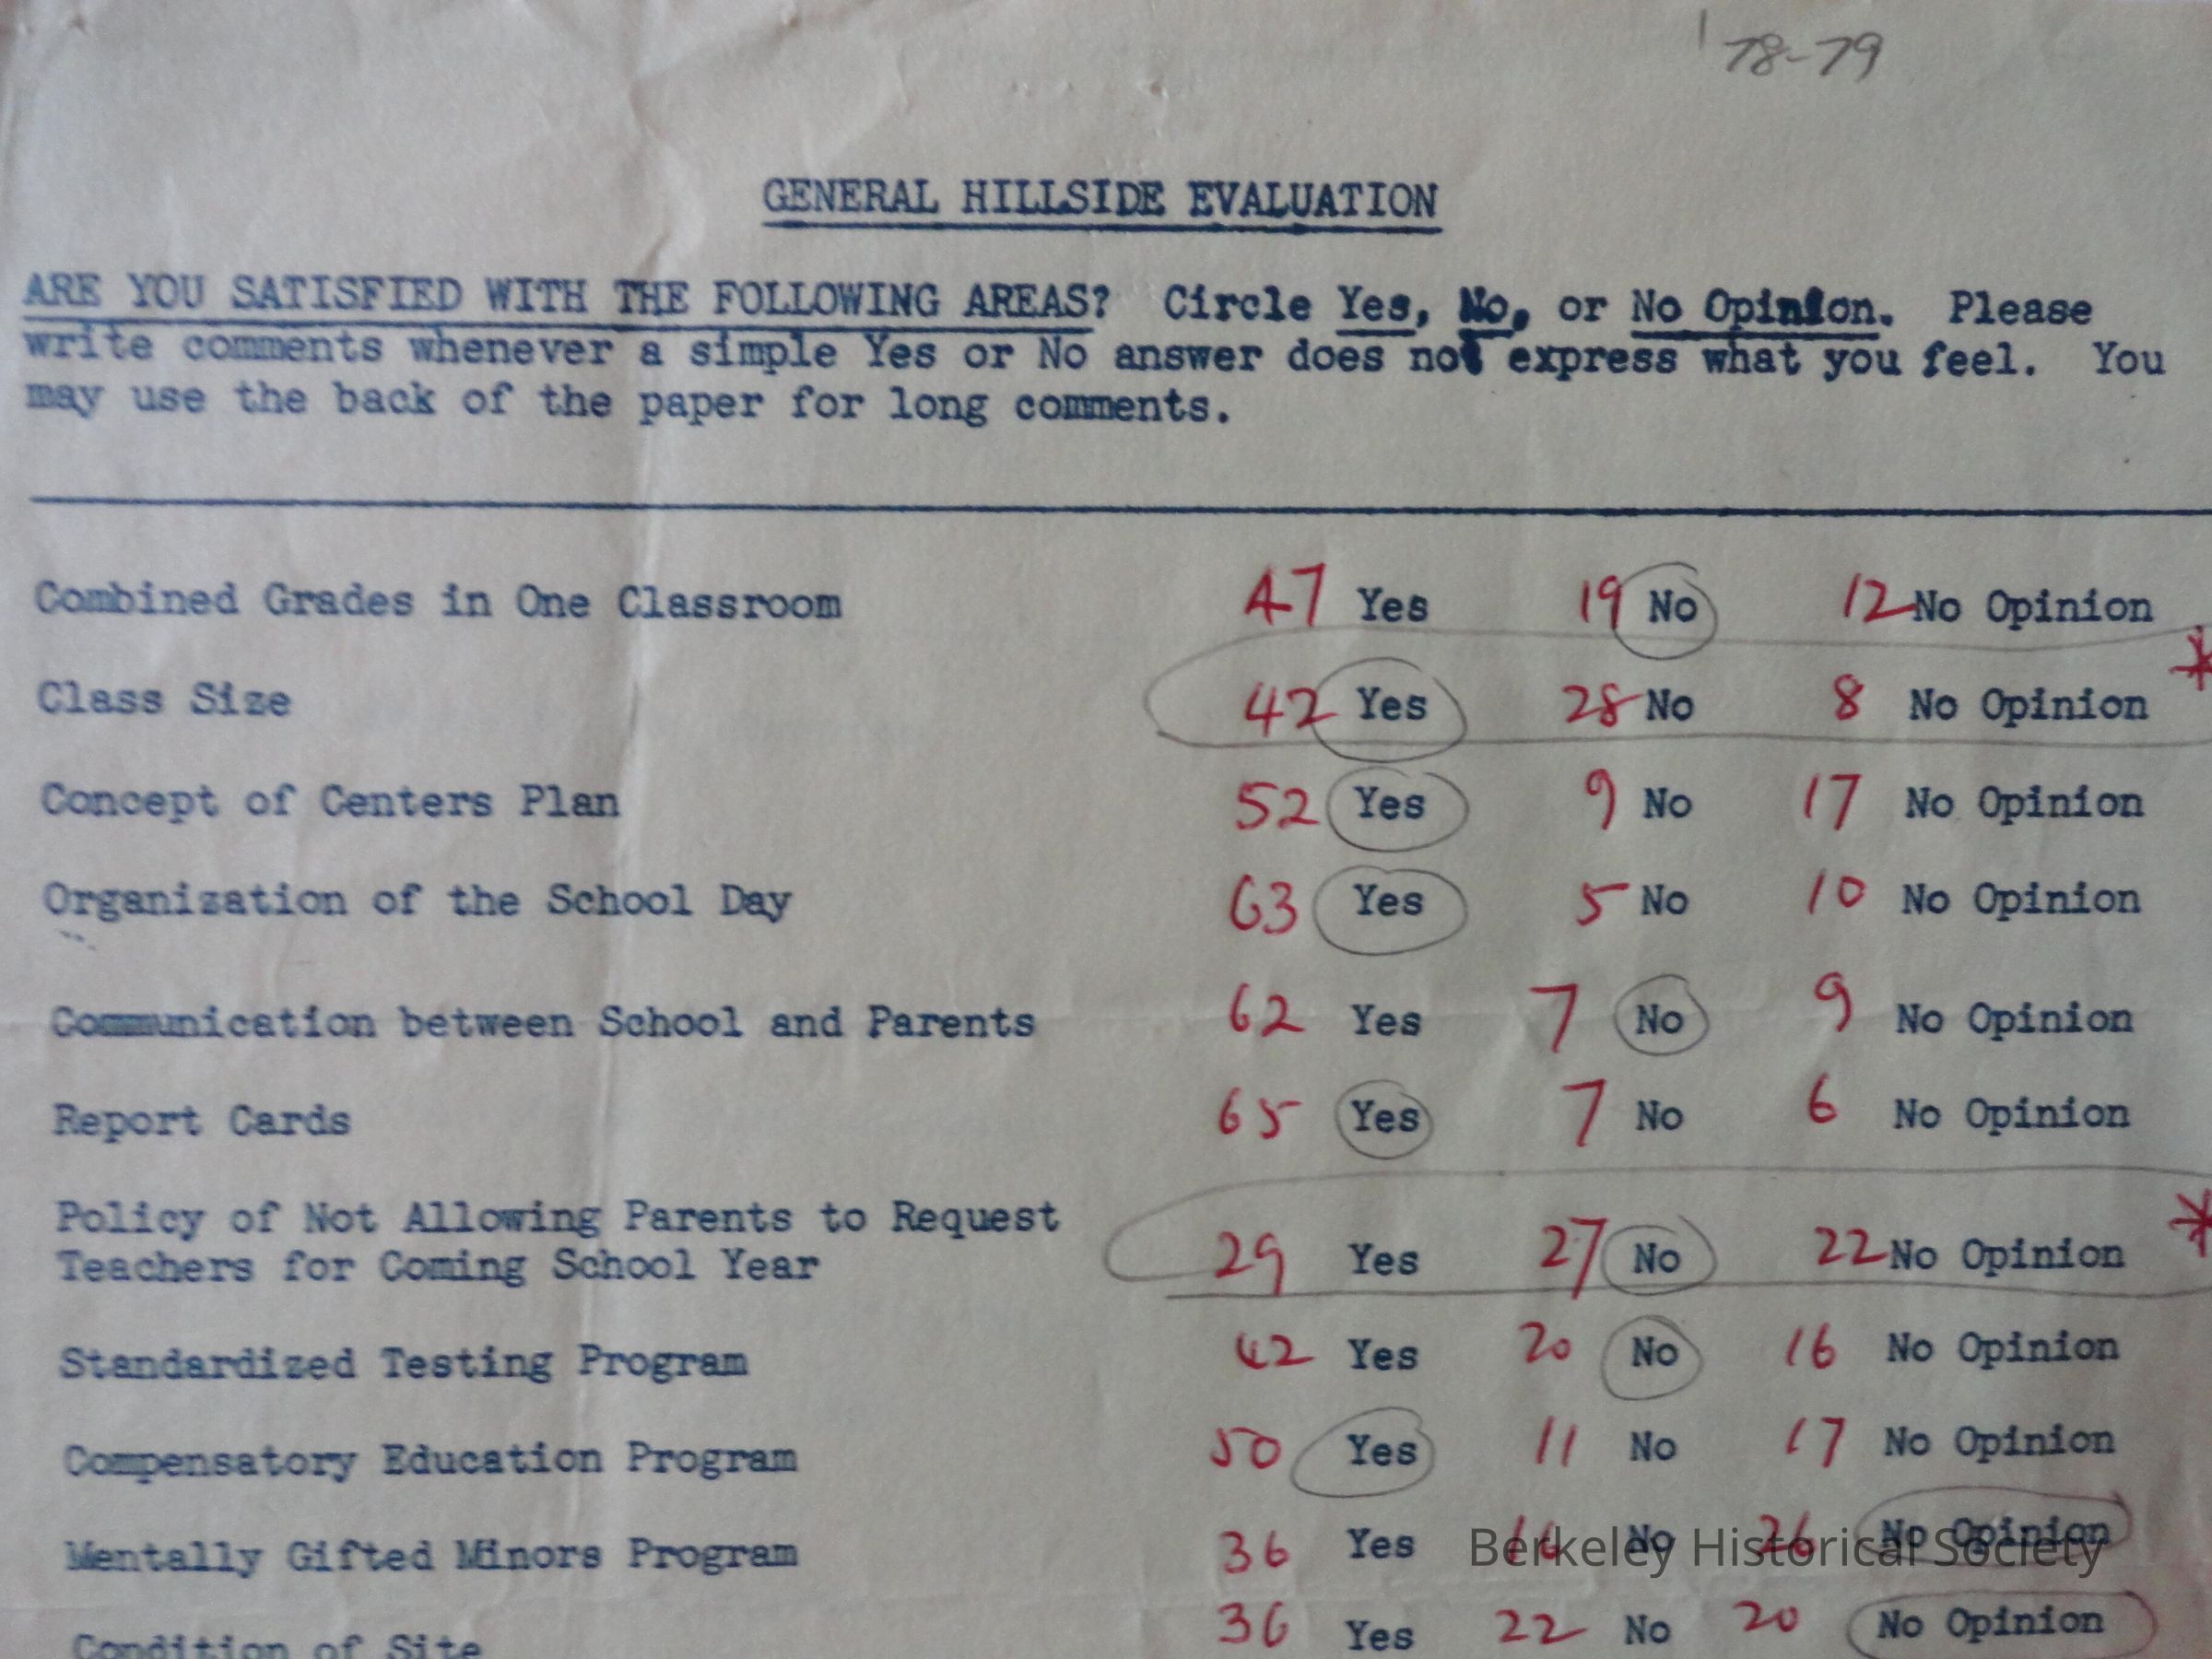 '78-79
GENERAL HILLSIDE EVALUATION
ARE YOU SATISFIED WITH THE FOLLOWING AREAS? Circle Yes, No, or No Opinion. Please
write comments whenever a simple Yes or No answer does not express what you feel. You
may use the back of the paper for long comments.
Combined Grades in One Classroom 47 Yes 19 No 12 No Opinion
Class Size 42 Yes 28 No 8 No Opinion *
Concept of Centers Plan 52 Yes 9 No 17 No Opinion
Organization of the School Day 63 Yes 5 No 10 No Opinion
Communication between School and Parents 62 Yes 7 No 9 No Opinion
Report Cards 65 Yes 7 No 6 No Opinion
Policy of Not Allowing Parents to Request
Teachers for Coming School Year 29 Yes 27 No 22 No Opinion *
Standardized Testing Program 42 Yes 20 No 16 No Opinion
Compensatory Education Program 50 Yes 11 No 17 No Opinion
Mentally Gifted Minors Program 36 Yes 16 No 26 No Opinion
Berkeley Historical Society
Condition of Site 36 Yes 22 No 20 No Opinion